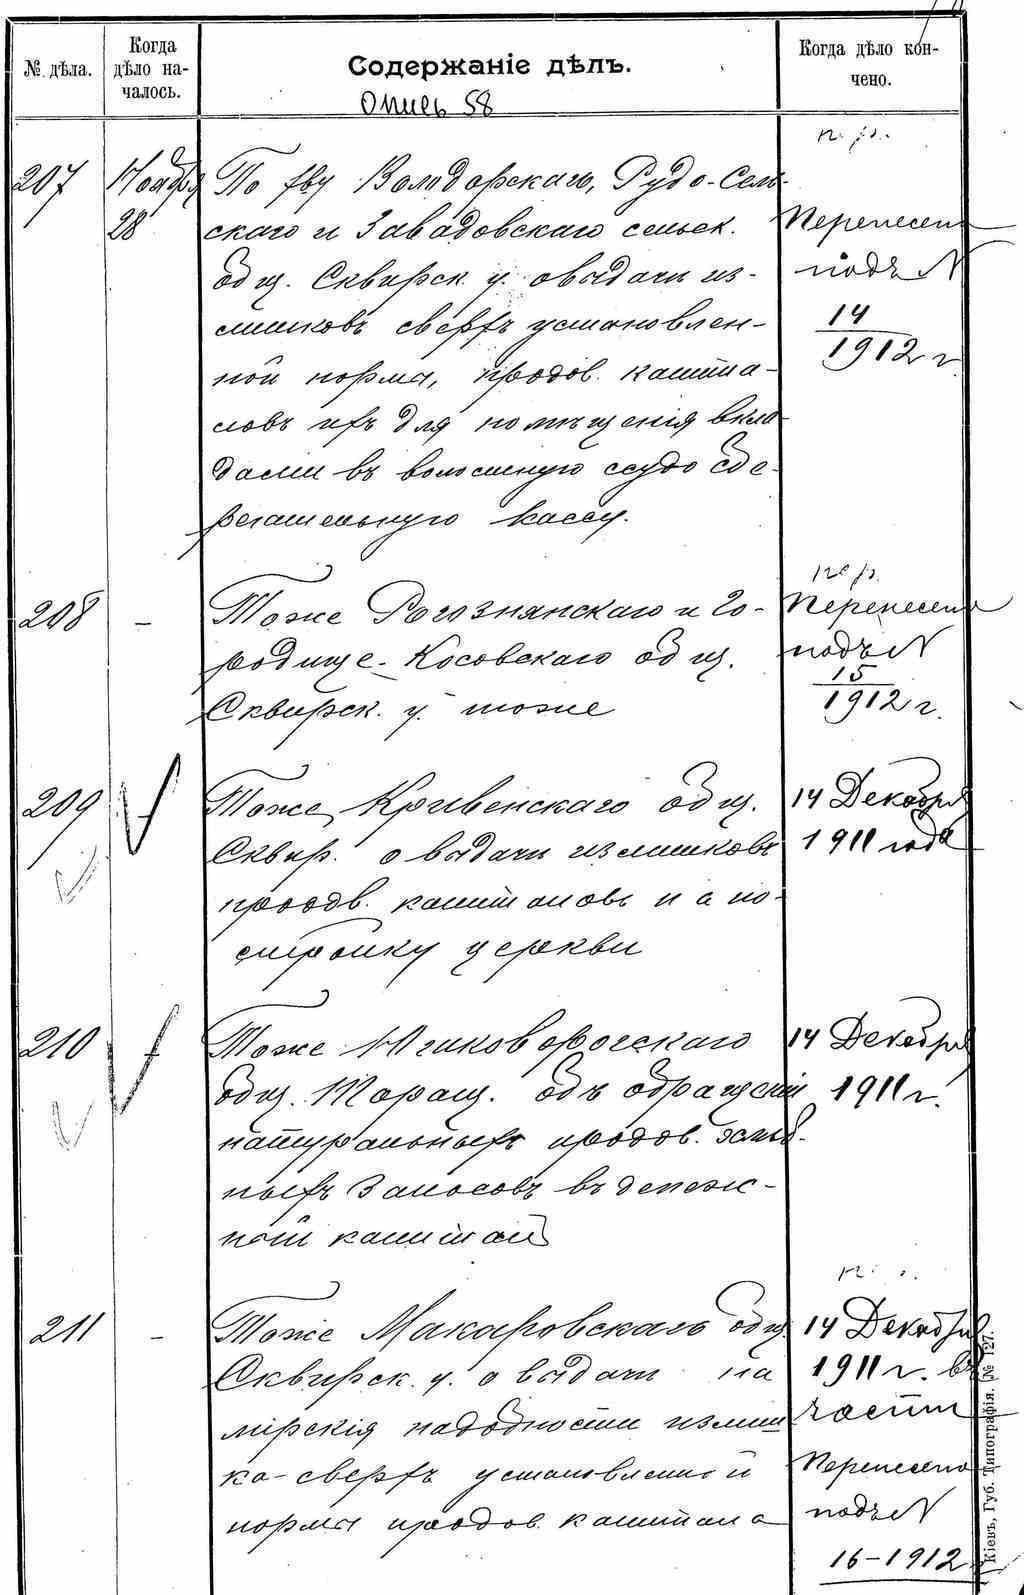 № дѣла.
Когда дѣло на-
чалось.
Содержаніе дѣлъ.
Когда дѣло кон-
чено.
Опись 58
207
Ноября
28
По хву Володарскаго, Рудо-Сель-
скаго и Завадовскаго сельск.
общ. Сквирск. у. о выдачи из-
лишковъ сверхъ установлен-
ной нормы, продов. капита-
ловъ ихъ для помѣщенія вкла-
дами въ волостную ссудо сбе-
регательную кассу.
Перенесено
подъ N
14
1912 г
208
-
Тоже Рогознянскаго и Го-
родище-Косовскаго общ.
Сквирск. у. тоже
пер.
Перенесено
подъ N
15
1912 г.
209
Тоже, Кривенскаго общ.
Сквир. о выдачи излишковъ
продов. капиталовъ на по-
стройку церкви
14 Декабря
1911 года
210
Тоже
общ. Таращ. объ обращеніи
натуральныхъ продов. хлѣб-
ныхъ запасовъ въ денеж-
ной капитал
14 Декабря
1911 г.
211
-
Тоже Макаровскаго общ.
Сквирск. у. о выдачи на
мірскія надобности излиш
ка сверхъ установленной
нормы продов. капитала
14 Декабря
1911 г. въ
части
Перенесено
подъ N
16-1912
Кіевъ, Губ. Типографія. № 127.